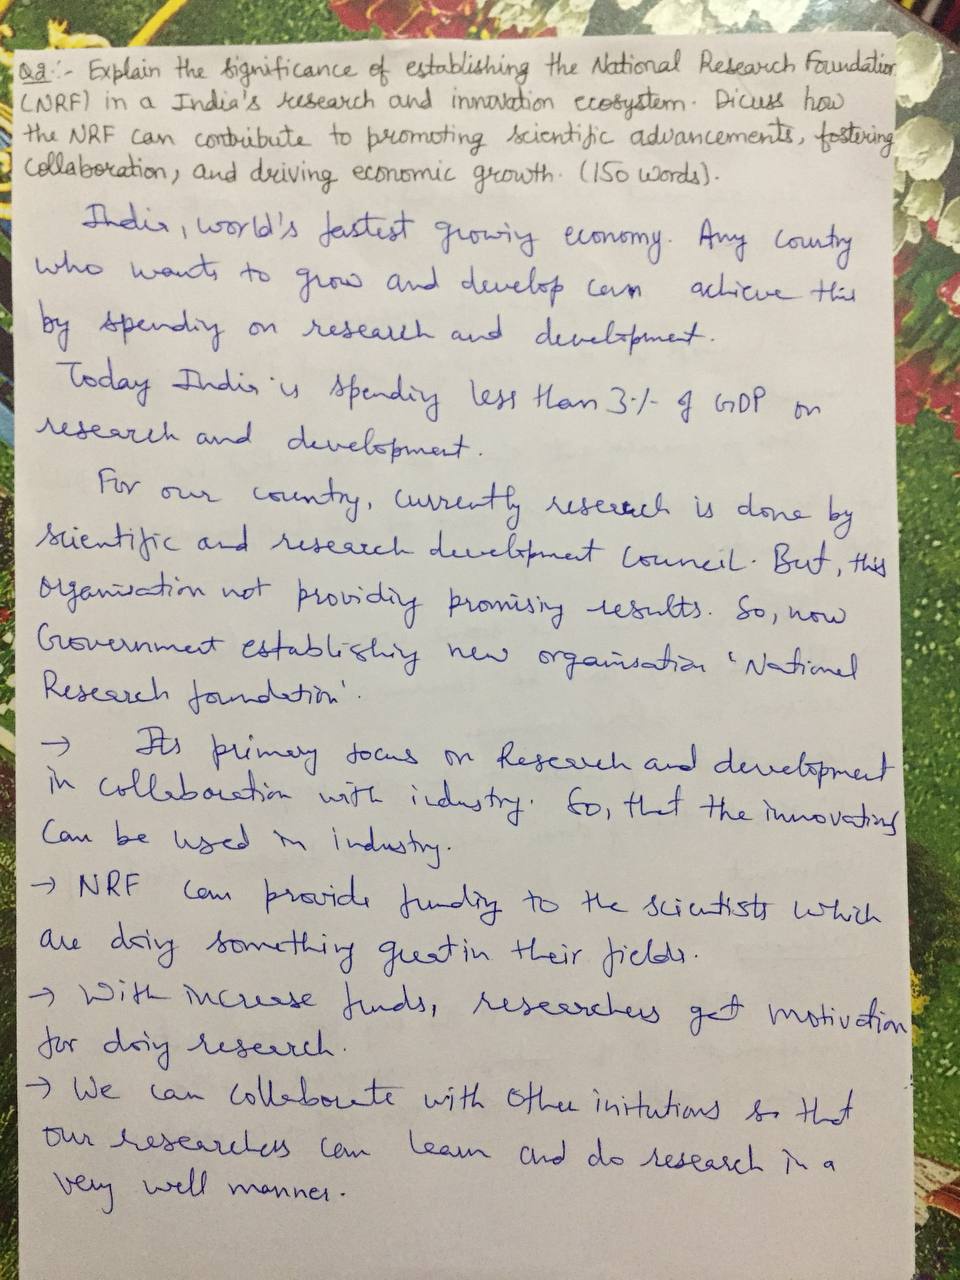 Q2:- Explain the significance of establishing the National Research Foundation
(NRF) in a India's research and innovation ecosystem. Dicuss how
the NRF can contribute to promoting scientific advancements, fostering
collaboration, and driving economic growth. (150 words).
India, world's fastest growing economy. Any country
who wants to grow and develop can achieve this
by spending on research and development.
Today India is spending less than 3% of GDP on
research and development.
For our country, currently research is done by
scientific and research development council. But, this
organisation not providing promising results. So, now
Government establishing new organisation 'National
Research foundation'.
→ Its primary focus on Research and development
in collaboration with industry. So, that the innovations
can be used in industry.
→ NRF can provide funding to the scientists which
are doing something great in their fields.
→ With increase funds, researchers get motivation
for doing research.
→ We can collaborate with other initutions so that
our researchers can learn and do research in a
very well manner.